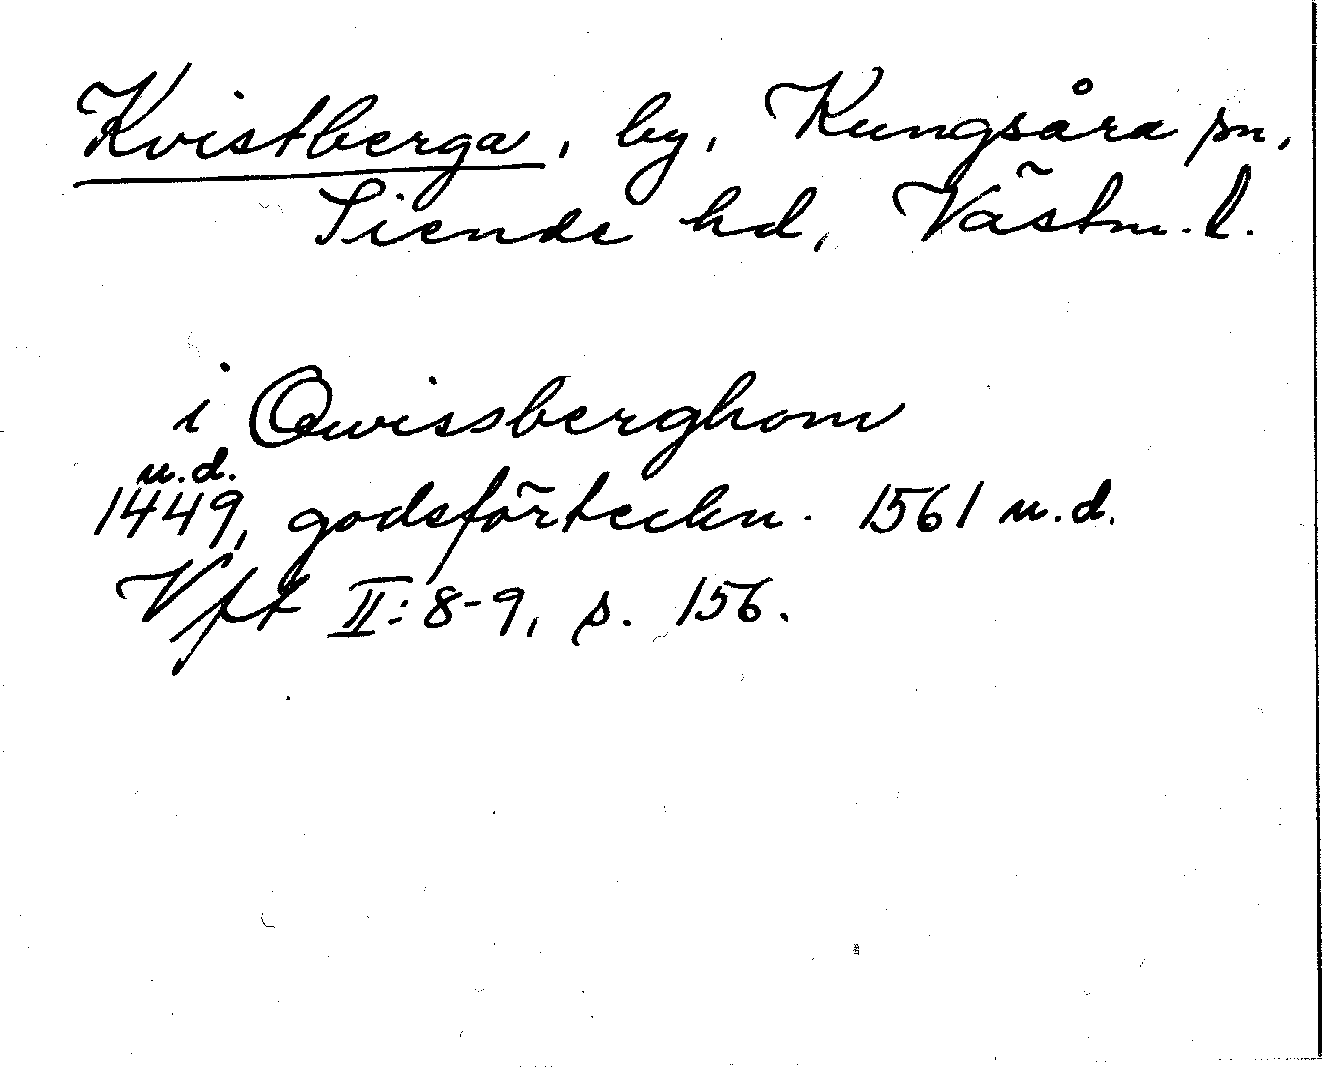 Kvistberga, by, Kungsåra sn,
Siende hd, Västm. l.
i Qwissberghom
u.d.
1449, godsförteckn. 1561 u.d.
Vft II: 8-9, s. 156.